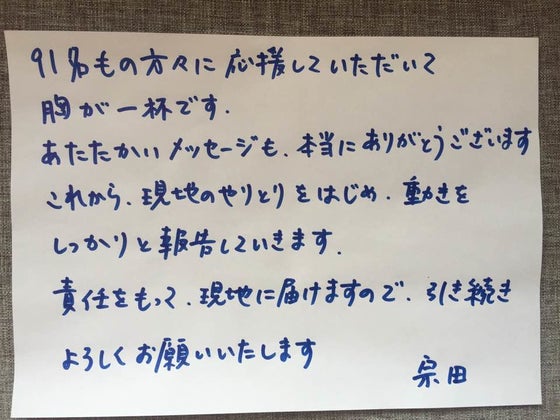 91%もの方々に応援していただいて
胸が一杯です.
あたたかいメッセージも、本当にありがとうございます
これから、現地のやりとりをはじめ、動きを
しっかりと報告していきます.
責任をもって、現地に届けますので、引き続き
よろしくお願いいたします
宗田